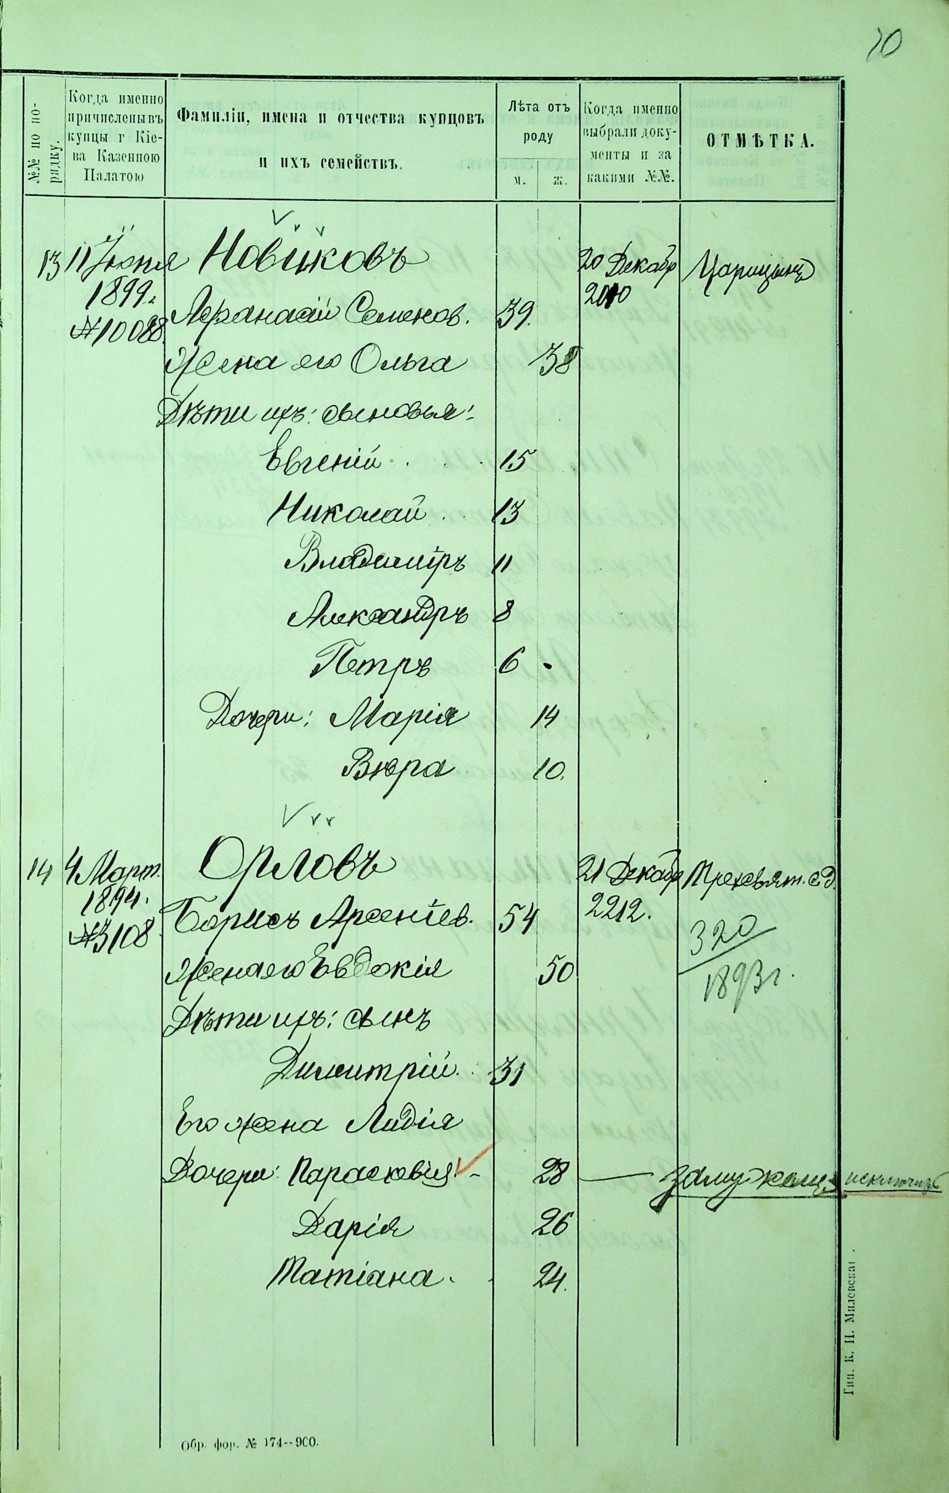 20
№№ по по-
рядку.
Когда именно
причислены въ
купцы г Кіе-
ва Казенною
Палатою
Фамиліи, имена и отчества купцовъ
и ихъ семействъ.
Лѣта отъ
роду
м. ж.
Когда именно
выбрали доку-
менты и за
какими №№.
ОТМѢТКА.
13 11 Іюня Новиковъ 20 Декабр Царицынъ
1899. 2110
№10088 Афанасій Семенов. 39.
Жена его Ольга 38
Дѣти ихъ: сыновья:
Евгеній 15
Николай 13
Владиміръ 11
Александръ 8
Петръ 6
Дочери: Марія 14
Вѣра 10.
14 4 Март. Орловъ 21 Декабр Трехсвят. сд.
1894. 2212.
№3108 Борисъ Арсеніев. 54 320
1893 г.
Жена его Евдокія 50
Дѣти ихъ: сынъ
Димитрій 31
Его жена Лидія
Дочери: Парасковія 28 замужемъ исключить
Дарія 26
Татіана 24.
Тип. К. Н. Милевскаг.
Обр. фор. № 174--900.